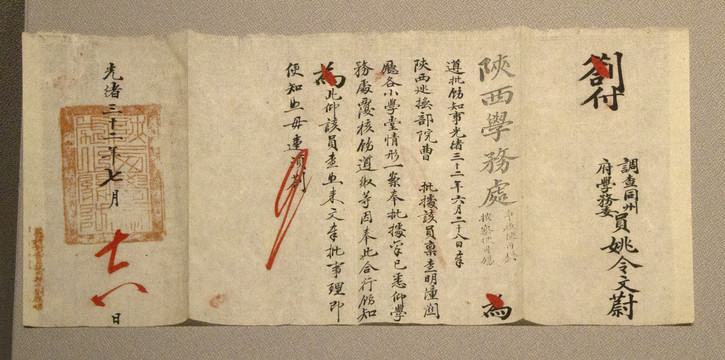 劄付
調查同州
府學務委
員姚令文蔚
陝西學務處
為
遵批飭知事光緒三十二年六月二十八日奉
陝西巡撫部院曹 批據該員稟查明潼關
廳各小學堂情形一案奉批據稟已悉仰學
務處覆核飭遵繳等因奉此合行飭知
為此仰該員查照來文奉批事理即
便知照毋違
光緒三十二年七月
十八
日